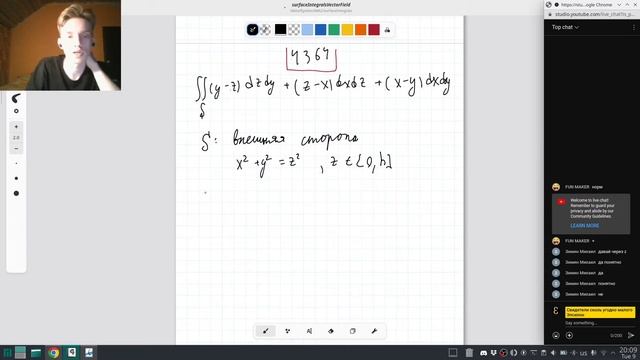 surfaceIntegralsVectorField
4364
∬(y-z) dzdy + (z-x) dxdz + (x-y) dxdy
S
S: внешняя сторона
x² + y² = z² , z ∈ [0, h]
2.0
studio.youtube.com/live_chat?is_p...
Top chat
FUN MAKER норм
Welcome to live chat! Remember to guard your privacy and abide by our Community Guidelines.
LEARN MORE
FUN MAKER +
Зимин Михаил давай через z
Зимин Михаил да понятно
Зимин Михаил да
Зимин Михаил понятно
Зимин Михаил не
Свидетели сколь угодно малого Эпсилон
Say something...
0/200
20:09
Tue 9